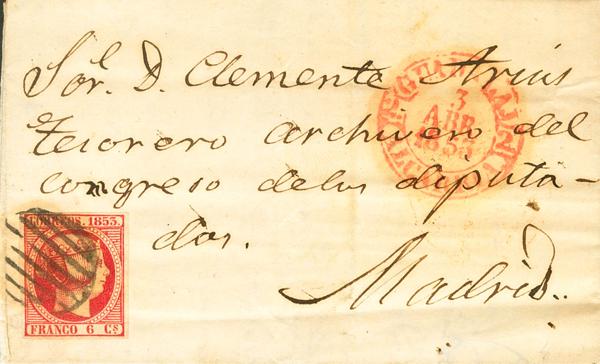 Sor. D. Clemente Arias
tesorero archivero del
congreso de los diputa-
dos.
Madrid.
3
ABR
1853
CORREOS. 1853.
FRANCO 6 Cs